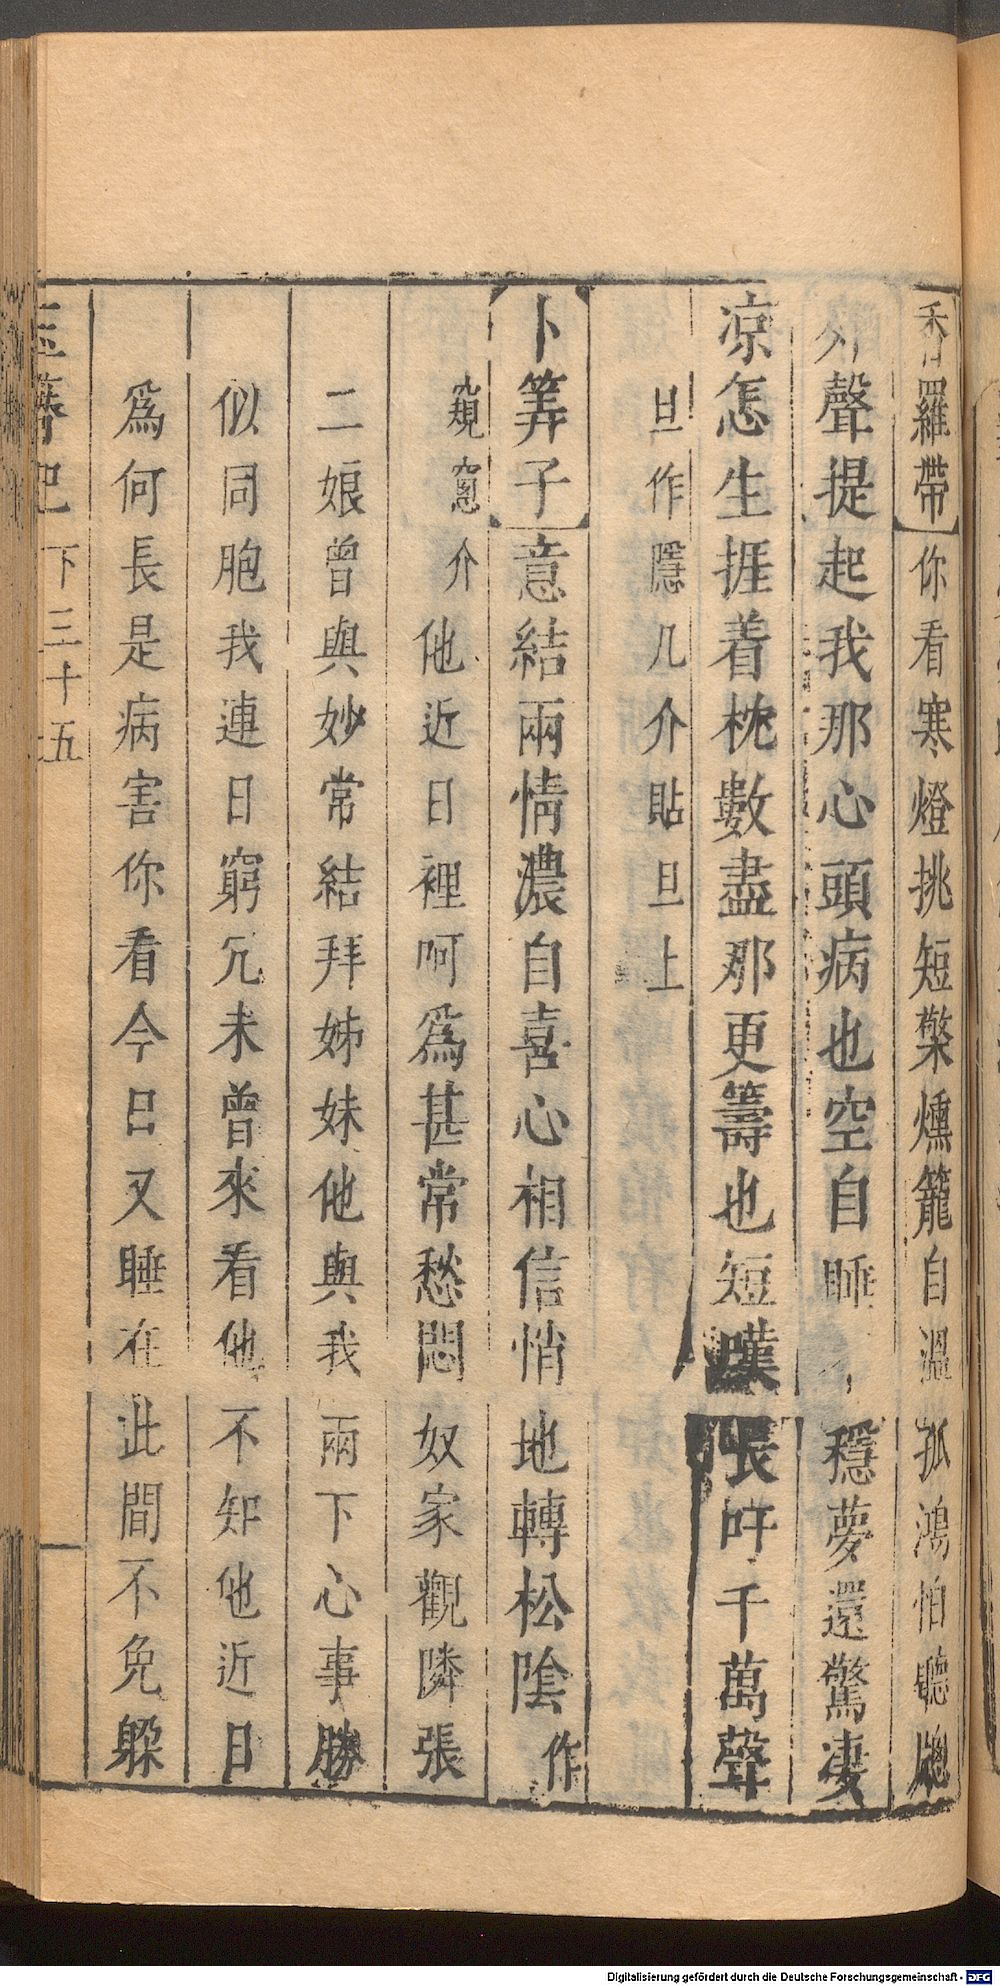 香羅帶 你看寒燈挑短檠燻籠自溫孤鴻怕聽牕
外聲提起我那心頭病也空自睡 穩夢還驚凄
凉怎生捱着枕數盡那更籌也短嘆長吁千萬聲
旦作隱几介貼旦上
卜筭子 意結兩情濃自喜心相信悄地轉松陰作
窺窻介他近日裡呵爲甚常愁悶奴家觀隣張
二娘曾與妙常結拜姊妹他與我兩下心事勝
似同胞我連日窮冗未曾來看他不知他近日
爲何長是病害你看今日又睡在此間不免躱
玉簪記 下三十五
Digitalisierung gefördert durch die Deutsche Forschungsgemeinschaft - DFG